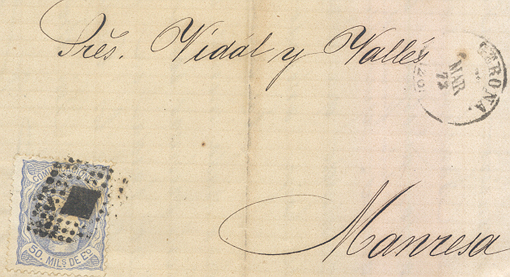 Srēs. Vidál y Vallés
GERONA.
MAR
72
COMUNICACIONES
50 MILS DE ES
Manresa